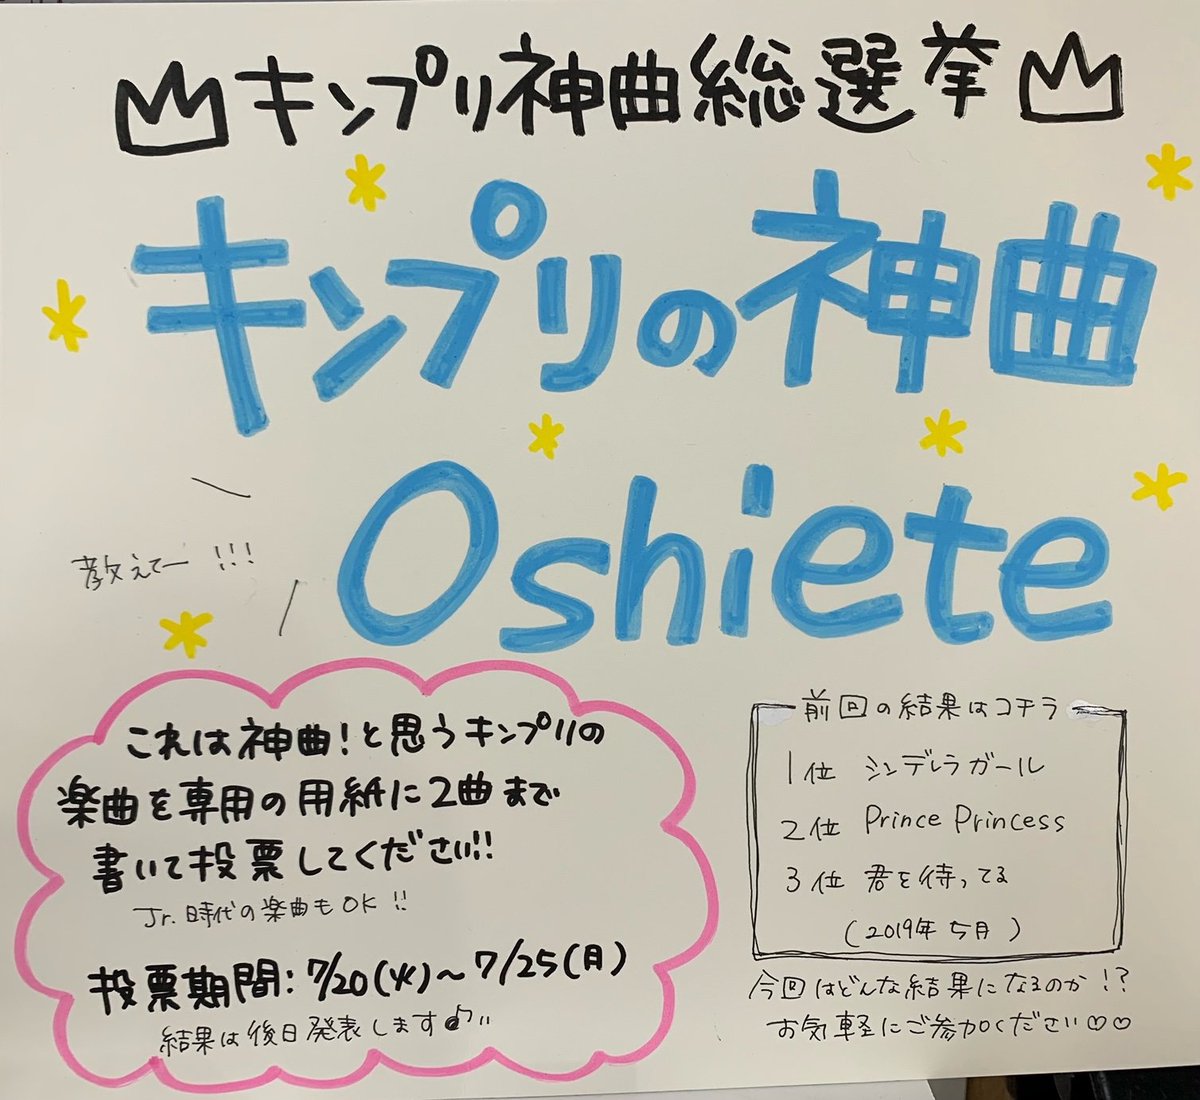 キンプリ神曲総選挙
キンプリの神曲
Oshiete
教えてー!!!
これは神曲!と思うキンプリの
楽曲を専用の用紙に2曲まで
書いて投票してください!!
Jr.時代の楽曲もOK!!
投票期間:7/20(水)~7/25(月)
結果は後日発表します♪
前回の結果はコチラ
1位 シンデレラガール
2位 Prince Princess
3位 君を待ってる
(2019年5月)
今回はどんな結果になるのか!?
お気軽にご参加ください♡♡